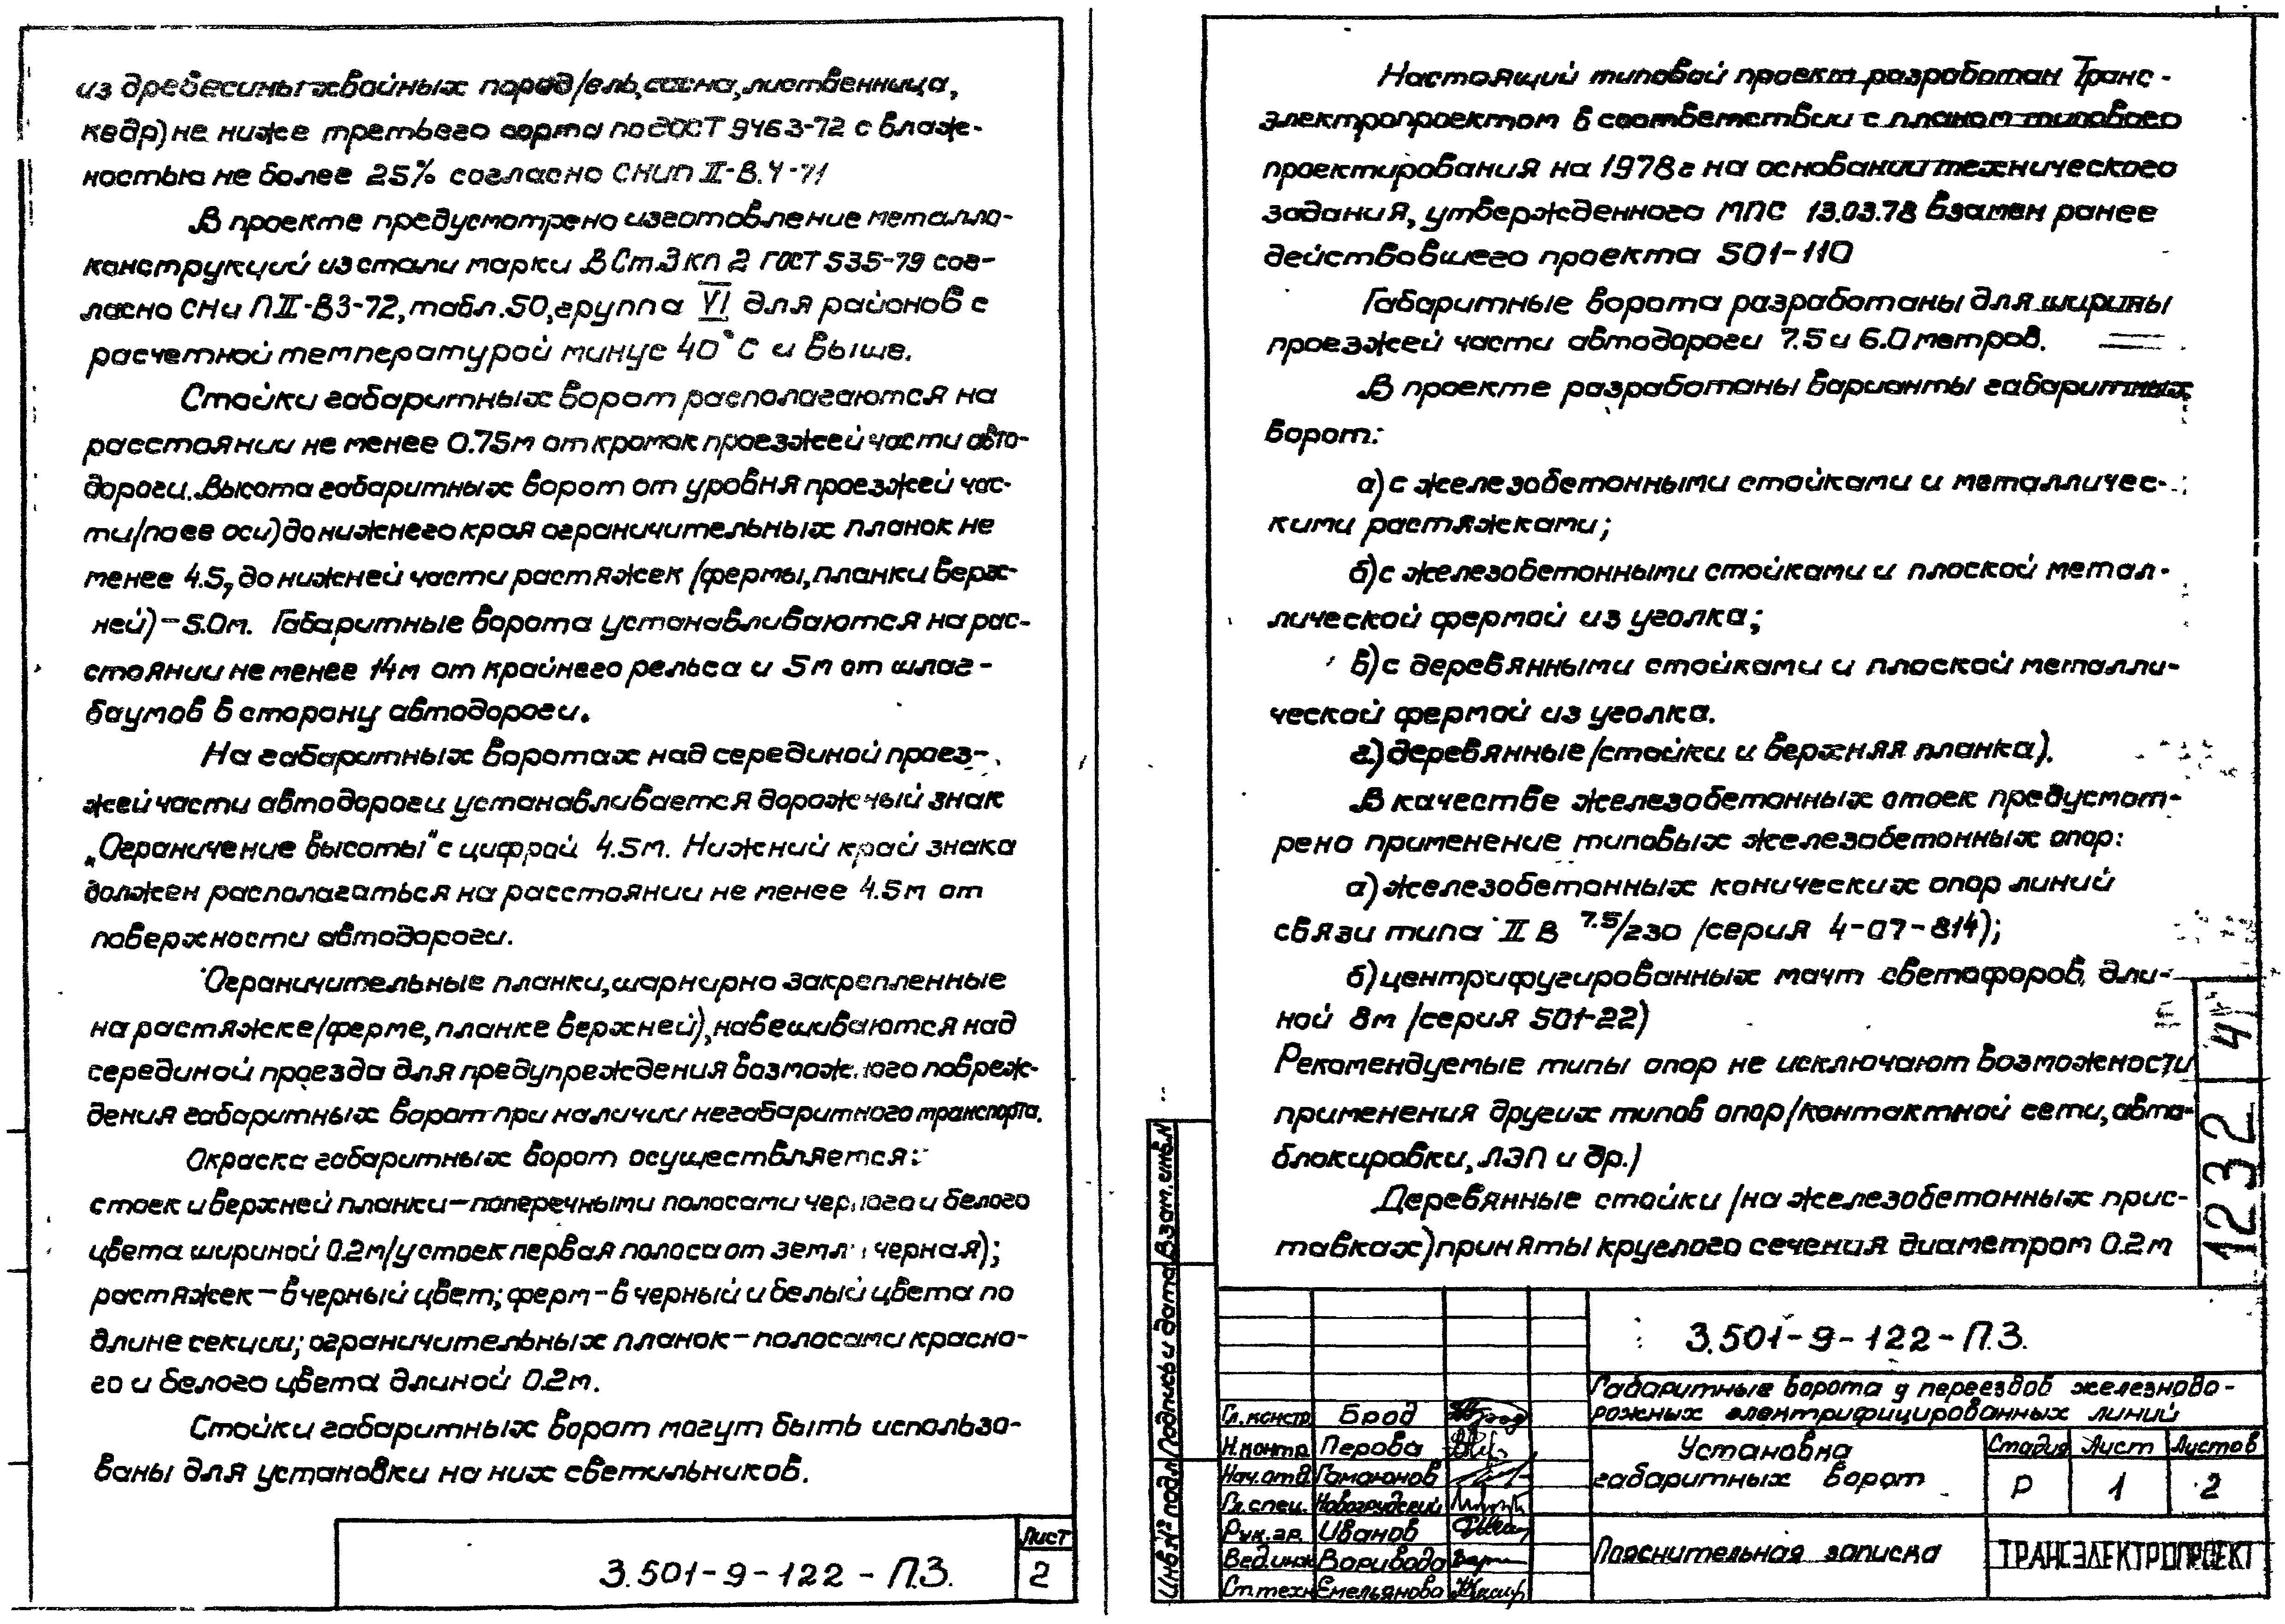 из древесины хвойных пород/ель, сосна, лиственница,
кедр) не ниже третьего сорта по ГОСТ 9463-72 с влаж-
ностью не более 25% согласно СНиП II-В.4-71
В проекте предусмотрено изготовление металло-
конструкций из стали марки ВСт.3кп2 ГОСТ 535-79 сог-
ласно СНиП II-В3-72, табл. 50, группа VI для районов с
расчетной температурой минус 40°С и выше.
Стойки габаритных ворот располагаются на
расстоянии не менее 0.75м от кромок проезжей части авто-
дороги. Высота габаритных ворот от уровня проезжей час-
ти/по ее оси) до нижнего края ограничительных планок не
менее 4.5, до нижней части растяжек /фермы, планки верх-
ней) - 5.0м. Габаритные ворота устанавливаются на рас-
стоянии не менее 14м от крайнего рельса и 5м от шлаг-
баумов в сторону автодороги.
На габаритных воротах над серединой проез-
жей части автодороги устанавливается дорожный знак
„Ограничение высоты" с цифрой 4.5м. Нижний край знака
должен располагаться на расстоянии не менее 4.5м от
поверхности автодороги.
Ограничительные планки, шарнирно закрепленные
на растяжке/ферме, планке верхней), навешиваются над
серединой проезда для предупреждения возможного повреж-
дения габаритных ворот при наличии негабаритного транспорта.
Окраска габаритных ворот осуществляется:
стоек и верхней планки - поперечными полосами черного и белого
цвета шириной 0.2м/у стоек первая полоса от земли черная);
растяжек - в черный цвет; ферм - в черный и белый цвета по
длине секции; ограничительных планок - полосами красно-
го и белого цвета длиной 0.2м.
Стойки габаритных ворот могут быть использо-
ваны для установки на них светильников.
3.501-9-122-П.З.
Лист
2
Настоящий типовой проект разработан Транс-
электропроектом в соответствии с планом типового
проектирования на 1978г на основании технического
задания, утвержденного МПС 13.03.78 взамен ранее
действовшего проекта 501-110
Габаритные ворота разработаны для ширины
проезжей части автодороги 7.5 и 6.0 метров.
В проекте разработаны варианты габаритных
ворот:
а) с железобетонными стойками и металличес-
кими растяжками;
б) с железобетонными стойками и плоской метал-
лической фермой из уголка;
в) с деревянными стойками и плоской металли-
ческой фермой из уголка.
г) деревянные /стойки и верхняя планка).
В качестве железобетонных стоек предусмот-
рено применение типовых железобетонных опор:
а) железобетонных конических опор линий
связи типа II В 7.5/230 /серия 4-07-814);
б) центрифугированных мачт светофоров дли-
ной 8м /серия 501-22)
Рекомендуемые типы опор не исключают возможности
применения других типов опор/контактной сети, авто-
блокировки, ЛЭП и др.)
Деревянные стойки /на железобетонных прис-
тавках) приняты круглого сечения диаметром 0.2м
1232 4
Инв.№ подл. Подпись и дата Взам.инв.№
3.501-9-122-П.З.
Габаритные ворота у переездов железнодо-
рожных электрифицированных линий
Гл.констр. Брод
Н.контр. Перова
Нач.отд. Гамаюнов
Гл.спец. Новогрудский
Рук.гр. Иванов
Вед.инж. Воривода
Ст.техн. Емельянова
Установка
габаритных ворот
Стадия Лист Листов
Р 1 2
Пояснительная записка
ТРАНСЭЛЕКТРОПРОЕКТ